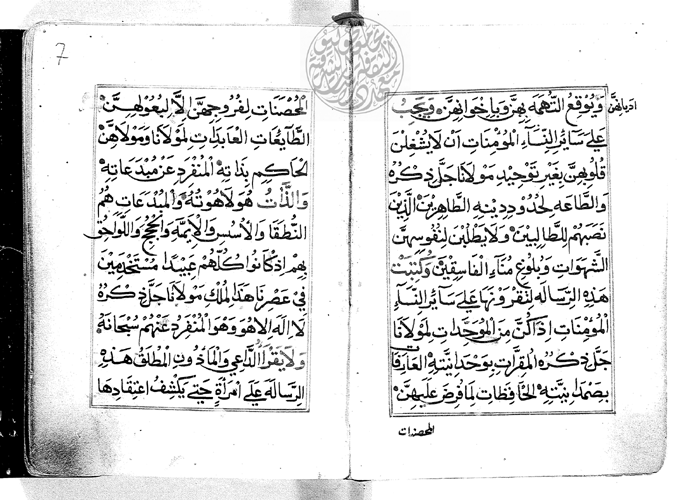 ويوقع التهمه بهن وباخوانهن ويجب
على سائر النساء المؤمنات ان لا يشغلن
قلوبهن بغير توحيد مولانا جل ذكره
والطاعه لحدود دينه الطاهرين الذين
نصبهم للطالبين ولا يطلبن لنفوسهن
الشهوات وبلوغ مناء الفاسقين وكتبت
هذه الرساله لتقرونها على سائر النساء
المؤمنات اذا كن من الموحدات لمولانا
جل ذكره المقرات بوحدانيته العارفات
بصمدانيته الحافظات لما فرض عليهن
المحصنات
7
المحصنات لفروجهن الا لبعولهن
الطايعات العابدات لمولانا ومولاهن
الحاكم بذاته المنفرد عن مبدعاته
والذات هو لاهوته والمبدعات هم
النطقا والاسس والايمه والحجج واللواحق
بهم اذ كانوا كلهم عبيدا مستخدمين
في عصرنا هذا الملك مولانا جل ذكره
لا اله الا هو وهو المنفرد عنهم سبحانه
ولا يقرا الداعي والماذون المطلق هذه
الرساله على امراة حتى يكشف اعتقادها